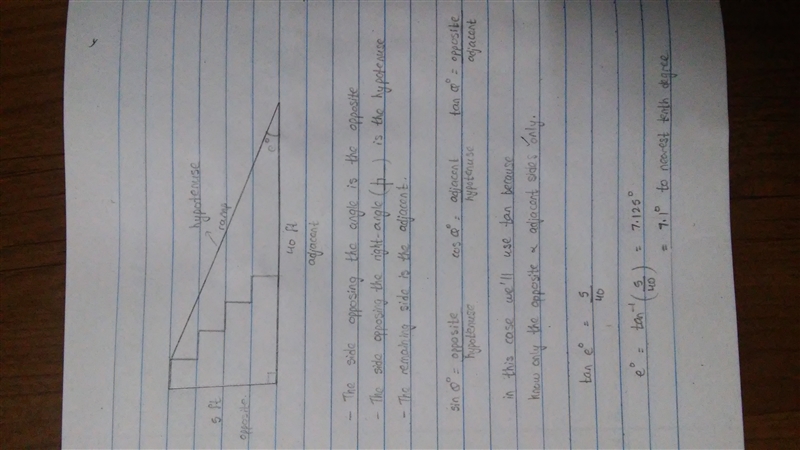 hypotenuse
ramp
5 ft
opposite
e°
40 ft
adjacent
- The side opposing the angle is the opposite
- The side opposing the right-angle ( ) is the hypotenuse
- The remaining side is the adjacent.
sin θ° = opposite / hypotenuse cos θ° = adjacent / hypotenuse tan θ° = opposite / adjacent
in this case we'll use tan because
know only the opposite & adjacent sides only.
tan e° = 5 / 40
e° = tan⁻¹ (5/40) = 7.125°
= 7.1° to nearest tenth degree